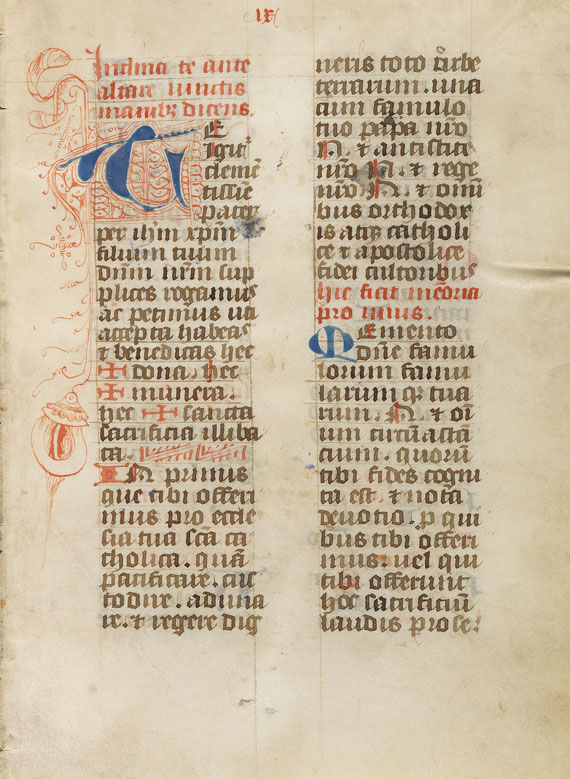 ix
Inclina te ante
altare iunctis
manibꝫ dicens.
TE
igit᷑
clemē
tissīe
pater
per ihm̄ xp̄m
filium tuum
dn̄m nr̄m sup
plices rogamus
ac petimus uti
accepta habeas
⁊ benedicas hec
✠ dona. hec
✠ munera.
hec ✠ sancta
sacrificia illiba
ta.
IN primis
que tibi offeri
mus pro eccle
sia tua sc̄a ca
tholica. quā
pacificare. cus
todire. aduna
re. ⁊ regere dig
neris toto orbe
terrarum. una
cum famulo
tuo papa nr̄o
N. ⁊ antistite
nr̄o N. ⁊ rege
nr̄o N. ⁊ omī
bus orthodox
is atqꝫ catholi
ce ⁊ apostolice
fidei cultoribus
hic ficit mēoria
pro uiuis.
Memento
dn̄e famu
lorum famu
larum qꝫ tua
rum. N. ⁊ oī
um circūastā
cium. quorū
tibi fides cogni
ta est. ⁊ nota
deuotio. ꝓ qui
bus tibi offeri
mus. uel qui
tibi offerunt
hoc sacrificiū
laudis pro se.